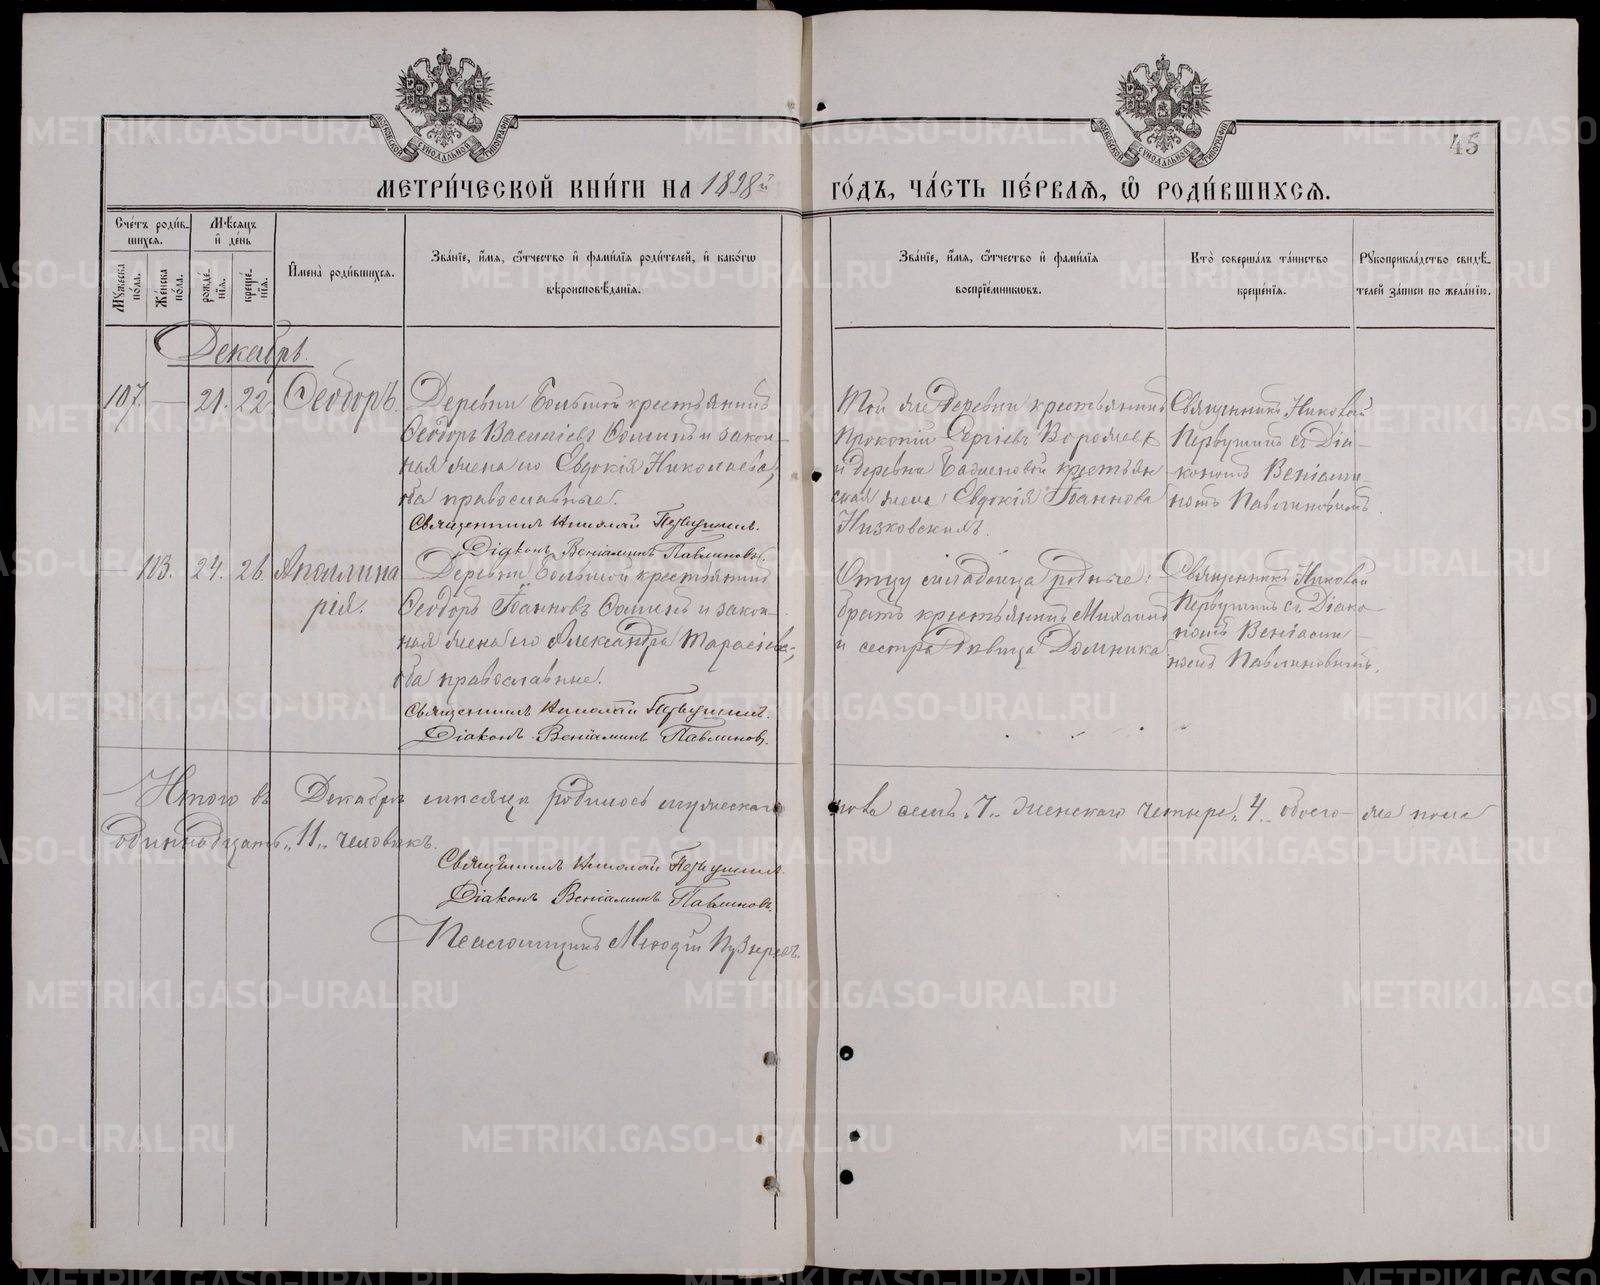 МОСКОВСКОЙ СѴНОДАЛЬНОЙ ТИПОГРАФІИ
МОСКОВСКОЙ СѴНОДАЛЬНОЙ ТИПОГРАФІИ
45
МЕТРИ́ЧЕСКОЙ КНИ́ГИ НА 1898й ГО́ДЪ, ЧА́СТЬ ПЕ́РВАѦ, Ѡ҆ РОДИ́ВШИХСѦ.
Сче́тъ роди́в-
шихсѧ.
Мѣ́сѧцъ
и҆ де́нь
Мꙋжеска
по́ла.
Же́нска
по́ла.
рожде́-
нїѧ.
креще́-
нїѧ.
И҆мена̀ роди́вшихсѧ.
Зва́нїе, и҆́мѧ, ѻ҆́тчество и҆ фами́лїѧ роди́телей, и҆ како́гѡ
вѣроисповѣ́данїѧ.
Зва́нїе, и҆́мѧ, ѻ҆́тчество и҆ фами́лїѧ
воспрїе́мникѡвъ.
Кто̀ соверша́лъ та́инство
креще́нїѧ.
Рꙋкоприкла́дство свидѣ́-
телей за́писи по жела́нїю.
Декабрь.
107. — 21. 22. Ѳеодоръ.
Деревни Большой крестьянинъ
Ѳеодоръ Василіевъ Ѳоминъ и закон-
ная жена его Евдокія Николаева,
оба православные.
Священникъ Николай Первушинъ.
Діаконъ Веніаминъ Павлиновъ.
Той же деревни крестьянинъ
Прокопій Сергіевъ
и деревни крестьян
ская жена Евдокія Іоаннова
Низковскихъ.
Священникъ Николай
Первушинъ съ Діа-
кономъ Веніами-
номъ Павлиновымъ.
— 103. 24. 26. Аполлина
рія.
Деревни Большой крестьянинъ
Ѳеодоръ Іоанновъ Ѳоминъ и закон-
ная жена его Александра Тарасіева,
оба православные.
Священникъ Николай Первушинъ.
Діаконъ Веніаминъ Павлиновъ.
Отцу младенца родные:
братъ крестьянинъ Михаилъ
и сестра дѣвица Домника
Священникъ Николай
Первушинъ съ Діако-
номъ Веніами-
номъ Павлиновымъ.
Итого въ Декабрѣ мѣсяцѣ родилось мужескаго пола семь „7„ женскаго четыре „4„ обоего- же пола
одиннадцать „11„ человѣкъ.
Священникъ Николай Первушинъ.
Діаконъ Веніаминъ Павлиновъ.
Псаломщикъ Меѳодій Пузыревъ.
METRIKI.GASO-URAL.RU